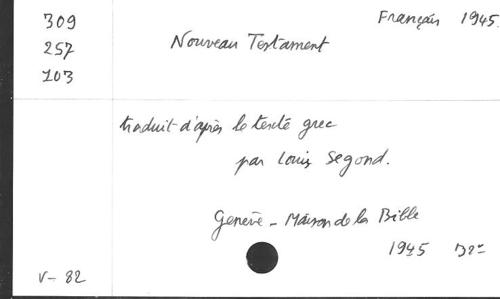 309
257
103
Français 1945.
Nouveau Testament
traduit d'après le texte grec
par Louis Segond.
Genève - Maison de la Bible
1945
V- 82